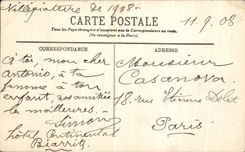 Villégiature de 1908-
CARTE POSTALE
11-9-08
Tous les Pays étrangers n'acceptent pas la Correspondance au recto.
(Se renseigner à la Poste)
CORRESPONDANCE
A toi, mon cher
Antonio, à ta
femme à ton
enfant, ses amitiés
les meilleures,
Simon
hôtel Continental
Biarritz
ADRESSE
Monsieur
Casanova
18, rue Etienne Dolet
Paris